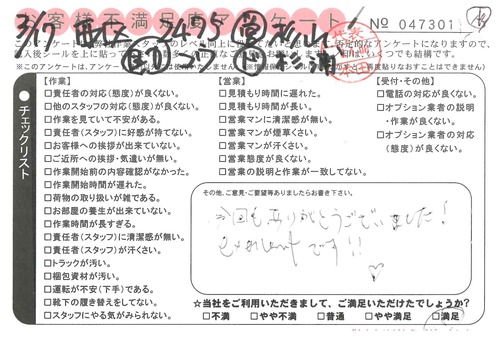 お客様不満足アンケート! № 047301
3/17 西区 2475 営 杉山
このアンケートは
※このアンケートは、アンケート
チェックリスト
【作業】
□責任者の対応(態度)が良くない。
□他のスタッフの対応(態度)が良くない。
□作業を見ていて不安がある。
□責任者(スタッフ)に好感が持てない。
□お客様への挨拶が出来ていない。
□ご近所への挨拶・気遣いが無い。
□作業開始前の内容確認がなかった。
□作業開始時間が遅れた。
□荷物の取り扱いが雑である。
□お部屋の養生が出来ていない。
□作業時間が長すぎる。
□責任者(スタッフ)に清潔感が無い。
□責任者(スタッフ)が汗くさい。
□トラックが汚い。
□梱包資材が汚い。
□運転が不安(下手)である。
□靴下の履き替えをしてない。
□スタッフにやる気がみられない。
【営業】
□見積もり時間に遅れた。
□見積もり時間が長い。
□営業マンに清潔感が無い。
□営業マンが煙草くさい。
□営業マンが汗くさい。
□営業態度が良くない。
□営業の説明と作業が一致してない。
【受付・その他】
□電話の対応が良くない。
□オプション業者の説明
・作業が良くない。
□オプション業者の対応
(態度)が良くない。
その他、ご意見・ご要望等ありましたらお書き下さい。
今回もありがとうございました!
です!!
☆当社をご利用いただきまして、ご満足いただけたでしょうか?
□不満 □やや不満 □普通 □やや満足 □満足